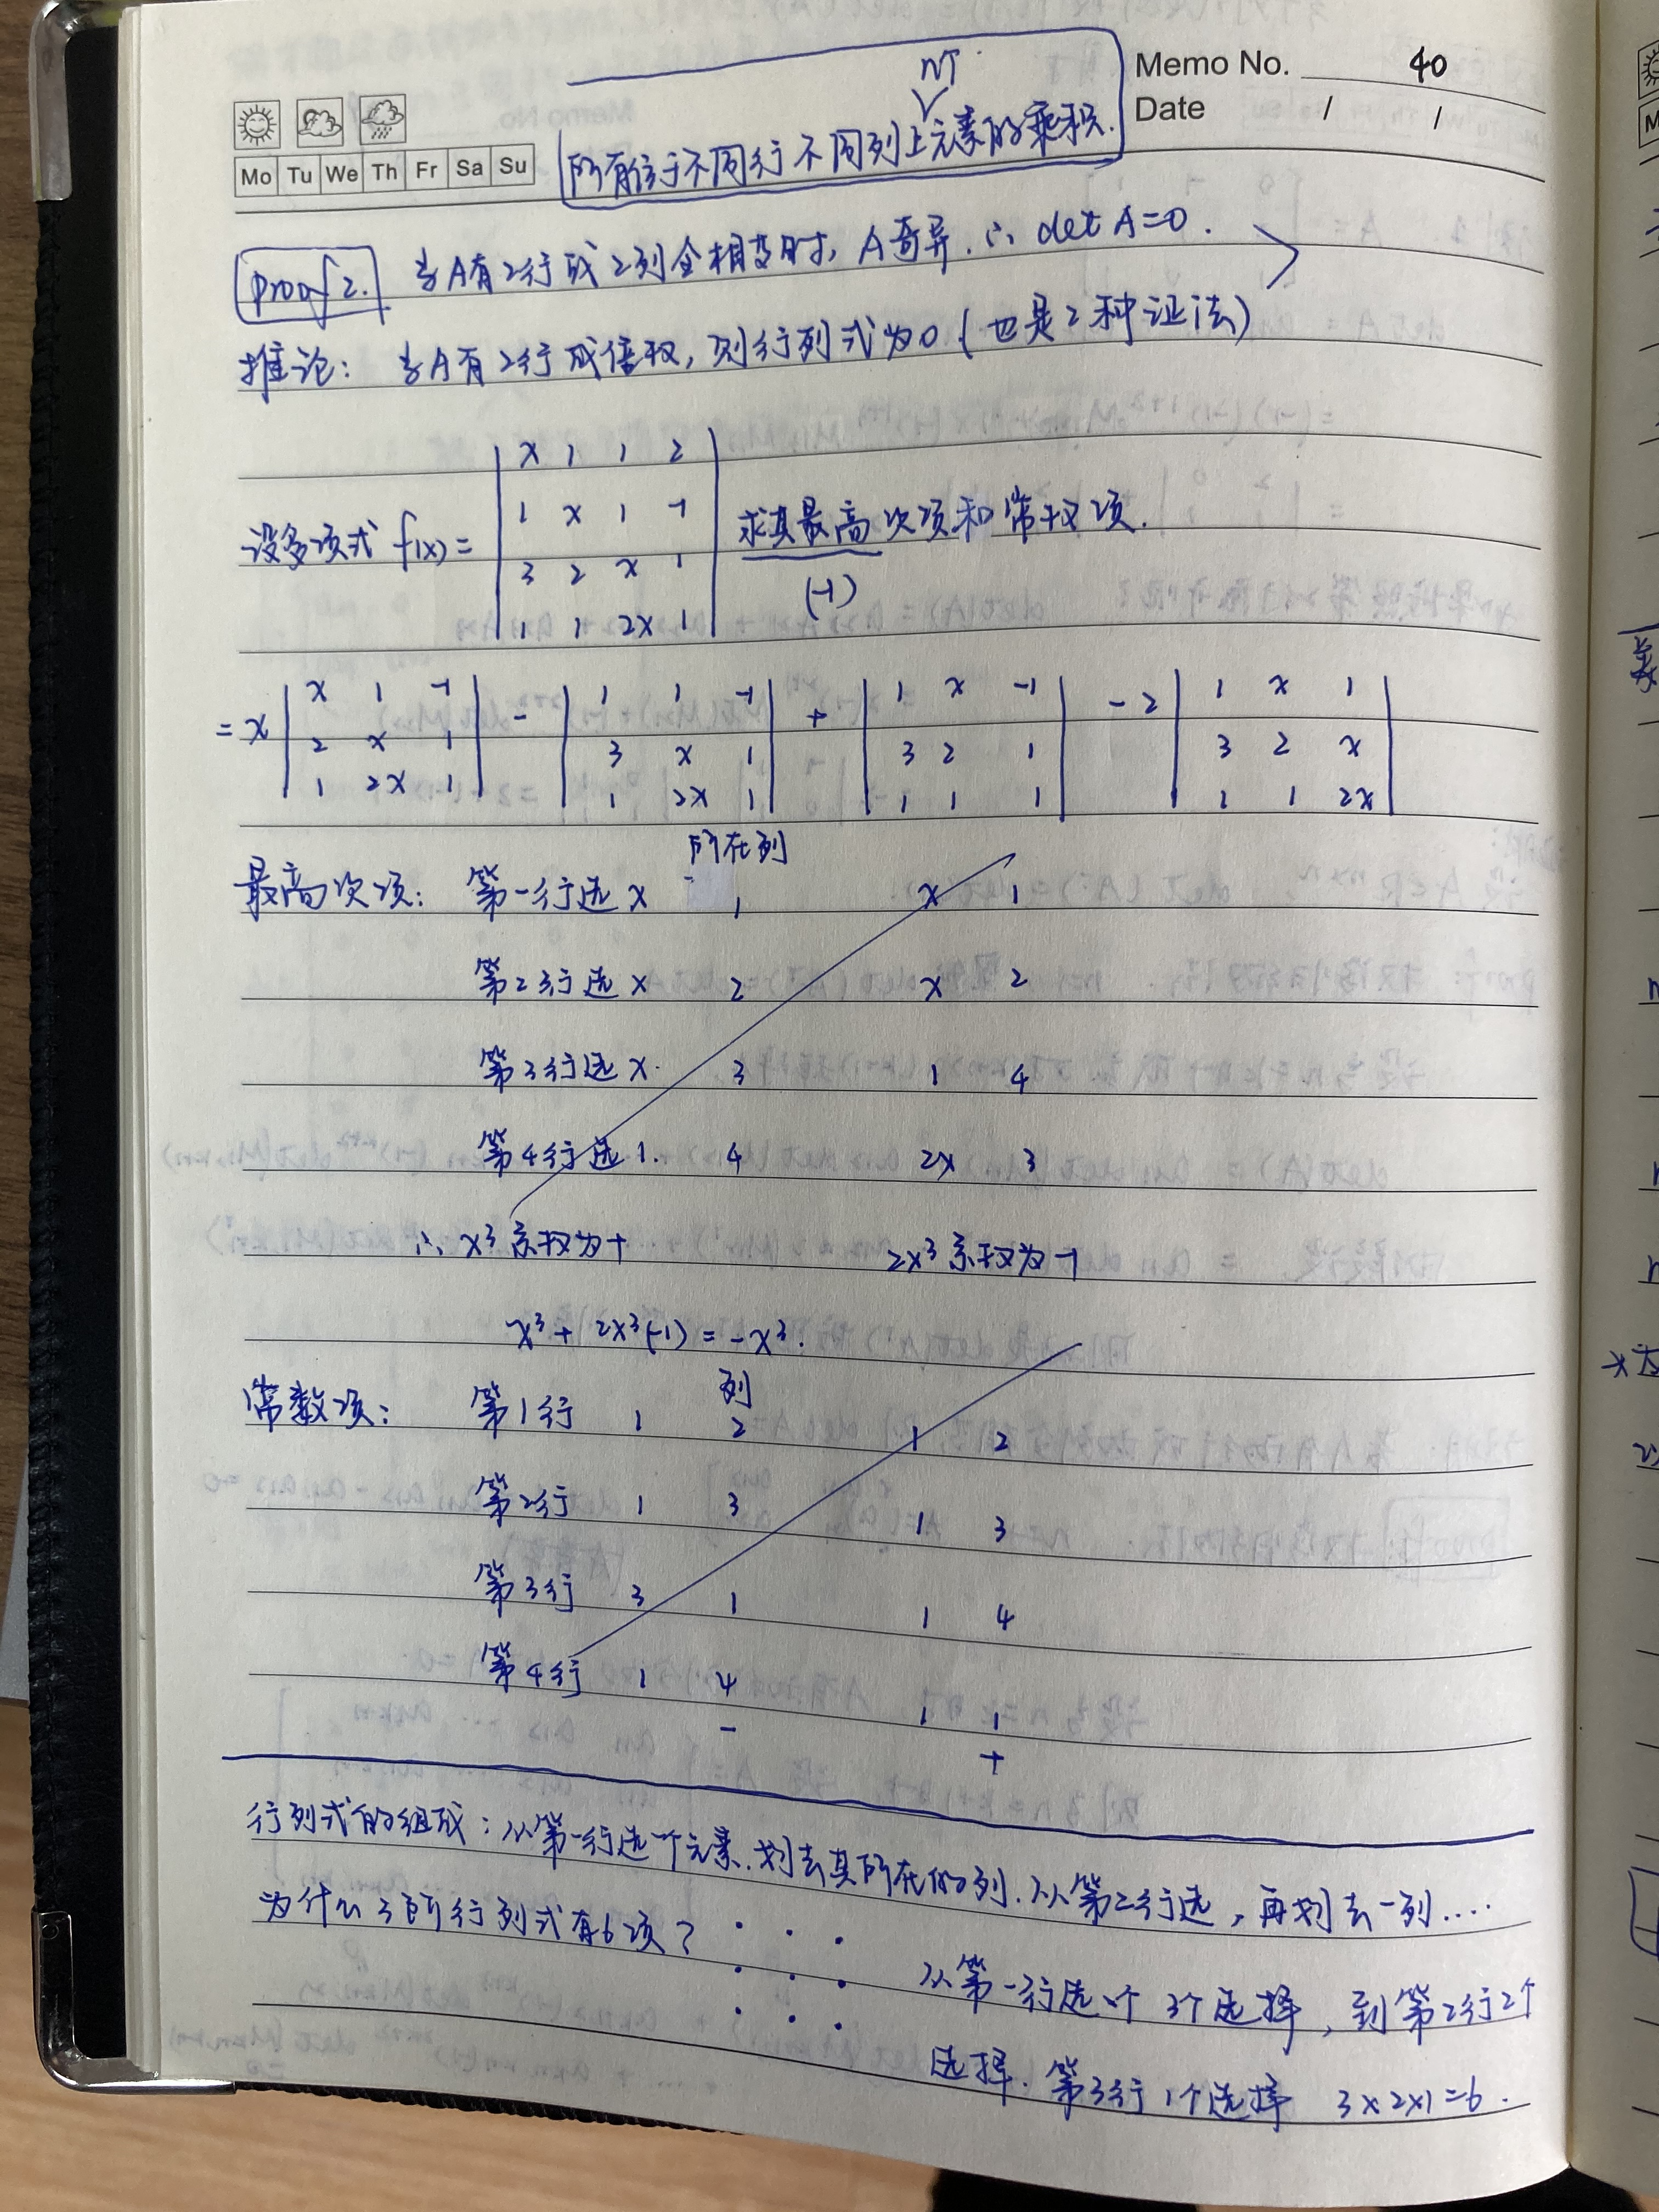 Memo No. 40
Date / /
Mo Tu We Th Fr Sa Su
n个
所有位于不同行不同列上元素的乘积.
Proof 2. 当A有2行或2列全相等时, A奇异. ∴ det A=0.
推论: 当A有2行成倍数, 则行列式为0 (也是2种证法)
x 1 1 2
1 x 1 -1
设多项式 f(x)= 求其最高次项和常数项.
3 2 x 1
(-1)
1 1 2x 1
= x | x 1 -1 | - | 1 1 -1 | + | 1 x -1 | - 2 | 1 x 1 |
2 x 1 3 x 1 3 2 1 3 2 x
1 2x 1 1 2x 1 1 1 1 1 1 2x
所在列
最高次项: 第一行选 x 1 x 1
第2行选 x 2 x 2
第3行选 x. 3 1 4
第4行选 1. 4 2x 3
∴ x³ 系数为+ 2x³ 系数为-1
x³ + 2x³(-1) = -x³.
列
常数项: 第1行 1 2 1 2
第2行 1 3 1 3
第3行 3 1 1 4
第4行 1 4 1 1
- +
行列式的组成: 从第一行选一个元素. 划去其所在的列. 从第二行选, 再划去一列....
为什么3阶行列式有6项?
从第一行选1个 3个选择, 到第2行2个
选择. 第3行1个选择 3×2×1=6.